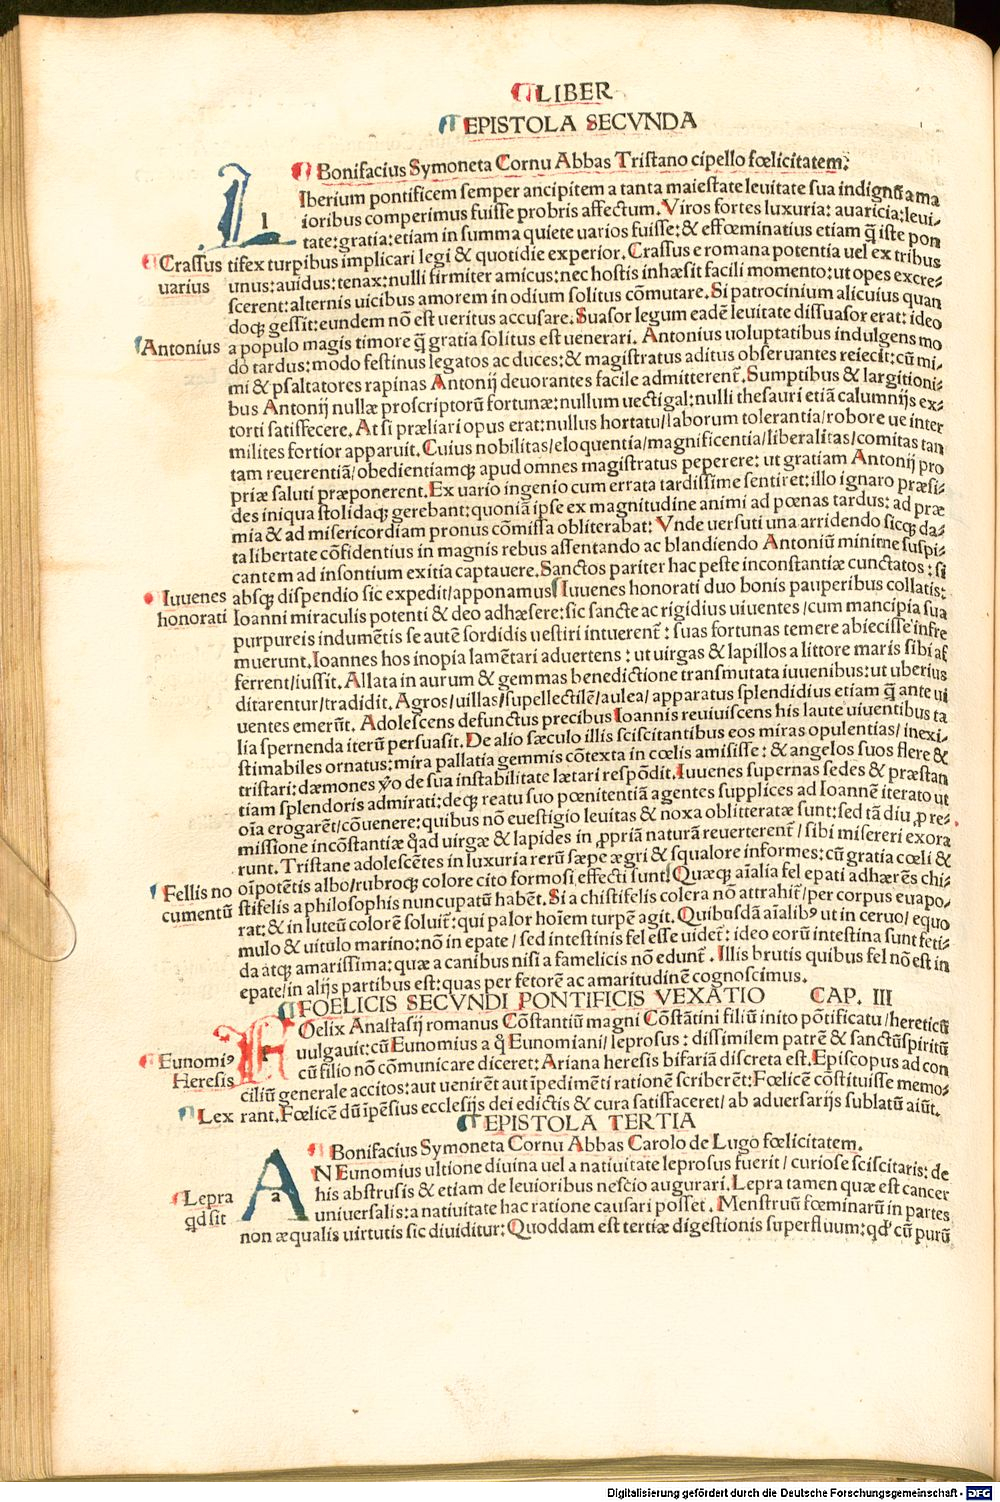 LIBER
EPISTOLA SECVNDA
Bonifacius Symoneta Cornu Abbas Tristano cipello fœlicitatem:
lIberium pontificem semper ancipitem a tanta maiestate leuitate sua indignũ a ma
ioribus comperimus fuisse probris affectum. Viros fortes luxuria: auaricia: leui/
tate: gratia: etiam in summa quiete uarios fuisse: & effœminatius etiam q̃ iste pon
Crassus uarius
tifex turpibus implicari legi & quotidie experior. Crassus e romana potentia uel ex tribus
unus: auidus: tenax: nulli firmiter amicus: nec hostis inhæsit facili momento: ut opes excre/
scerent: alternis uicibus amorem in odium solitus cõmutare. Si patrocinium alicuius quan
doq; gessit: eundem nõ est ueritus accusare. Suasor legum eadẽ leuitate dissuasor erat: ideo
Antonius
a populo magis timore q̃ gratia solitus est uenerari. Antonius uoluptatibus indulgens mo
do tardus: modo festinus legatos ac duces: & magistratus aditus obseruantes reiecit: cũ mi/
mi & psaltatores rapinas Antonij deuorantes facile admitterent̃. Sumptibus & largitioni/
bus Antonij nullæ proscriptorũ fortunæ: nullum uectigal: nulli thesauri etiã calumnijs ex/
torti satisfecere. At si præliari opus erat: nullus hortatu/laborum tolerantia/robore ue inter
milites fortior apparuit. Cuius nobilitas/eloquentia/magnificentia/liberalitas/comitas tan
tam reuerentiã/obedientiamq; apud omnes magistratus peperere: ut gratiam Antonij pro
priæ saluti præponerent. Ex uario ingenio cum errata tardissime sentiret: illo ignaro præsi/
des iniqua stolidaq; gerebant: quoniã ipse ex magnitudine animi ad pœnas tardus: ad præ
mia & ad misericordiam pronus cõmissa obliterabat: Vnde uersuti una arridendo sicq; da/
ta libertate cõfidentius in magnis rebus assentando ac blandiendo Antoniũ minime suspi/
cantem ad insontium exitia captauere. Sanctos pariter hac peste inconstantiæ cunctatos: si
Iuuenes honorati
absq; dispendio sic expedit/apponamus Iuuenes honorati duo bonis pauperibus collatis:
Ioanni miraculis potenti & deo adhæsere: sic sancte ac rigidius uiuentes/cum mancipia sua
purpureis indumẽtis se autẽ sordidis uestiri intuerent̃: suas fortunas temere abiecisse infre
muerunt. Ioannes hos inopia lamẽtari aduertens: ut uirgas & lapillos a littore maris sibi af
ferrent/iussit. Allata in aurum & gemmas benedictione transmutata iuuenibus: ut uberius
ditarentur/tradidit. Agros/uillas/supellectilẽ/aulea/apparatus splendidius etiam q̃ ante ui
uentes emerũt. Adolescens defunctus precibus Ioannis reuiuiscens his laute uiuentibus ta
lia spernenda iterũ persuasit. De alio sæculo illis sciscitantibus eos miras opulentias/inexi/
stimabiles ornatus: mira pallatia gemmis cõtexta in cœlis amisisse: & angelos suos flere &
tristari: dæmones ỹo de sua instabilitate lætari respõdit. Iuuenes supernas sedes & præstan
tiam splendoris admirati: deq; reatu suo pœnitentiã agentes supplices ad Ioannẽ iterato ut
oĩa erogarẽt/cõuenere: quibus nõ euestigio leuitas & noxa oblitteratæ sunt: sed tã diu ꝓ re/
missione incõstantiæ q̃ad uirgæ & lapides in ꝓpriã naturã reuerterent̃/sibi misereri exora
runt. Tristane adolescẽtes in luxuria rerũ sæpe ægri & squalore informes: cũ gratia cœli &
Fellis no cumentũ
oĩpotẽtis albo/rubroq; colore cito formosi effecti sunt. Quæq; aĩalia fel epati adhærẽs chi/
stifelis a philosophis nuncupatũ habẽt. Si a chistifelis colera nõ attrahit̃/per corpus euapo/
rat: & in luteũ colorẽ soluit̃: qui palor hoĩem turpẽ agit. Quibusdã aĩalibꝰ ut in ceruo/equo
mulo & uitulo marino: nõ in epate/sed intestinis fel esse uidet̃: ideo eorũ intestina sunt feti/
da atq; amarissima: quæ a canibus nisi a famelicis nõ edunt̃. Illis brutis quibus fel nõ est in
epate/in alijs partibus est: quas per fetorẽ ac amaritudinẽ cognoscimus.
FOELICIS SECVNDI PONTIFICIS VEXATIO CAP. III
FOelix Anastasij romanus Cõstantiũ magni Cõstãtini filiũ inito põtificatu/hereticũ
uulgauit: cũ Eunomius a q̃ Eunomiani/leprosus: dissimilem patrẽ & sanctũspiritũ
Eunomiꝰ Heresis
cũ filio nõ cõmunicare diceret: Ariana heresis bifariã discreta est. Episcopus ad con
ciliũ generale accitos: aut uenirẽt aut ĩpedimẽti rationẽ scriberẽt: Fœlicẽ cõstituisse memo/
Lex
rant. Fœlicẽ dũ ĩpẽsius ecclesijs dei edictis & cura satisfaceret/ab aduersarijs sublatũ aiũt.
EPISTOLA TERTIA
Bonifacius Symoneta Cornu Abbas Carolo de Lugo fœlicitatem.
aN Eunomius ultione diuina uel a natiuitate leprosus fuerit/curiose sciscitaris: de
Lepra qd sit
his abstrusis & etiam de leuioribus nescio augurari. Lepra tamen quæ est cancer
uniuersalis: a natiuitate hac ratione causari posset. Menstruũ fœminarũ in partes
non æqualis uirtutis sic diuiditur: Quoddam est tertiæ digestionis superfluum: qd' cũ purũ
Digitalisierung gefördert durch die Deutsche Forschungsgemeinschaft - DFG